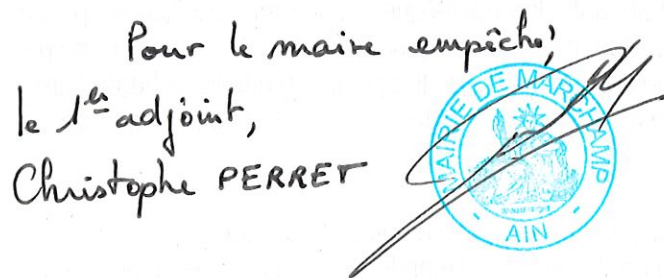 Pour le maire empêché,
le 1er adjoint,
Christophe PERRET
MAIRIE DE MARCHAMP
- AIN -